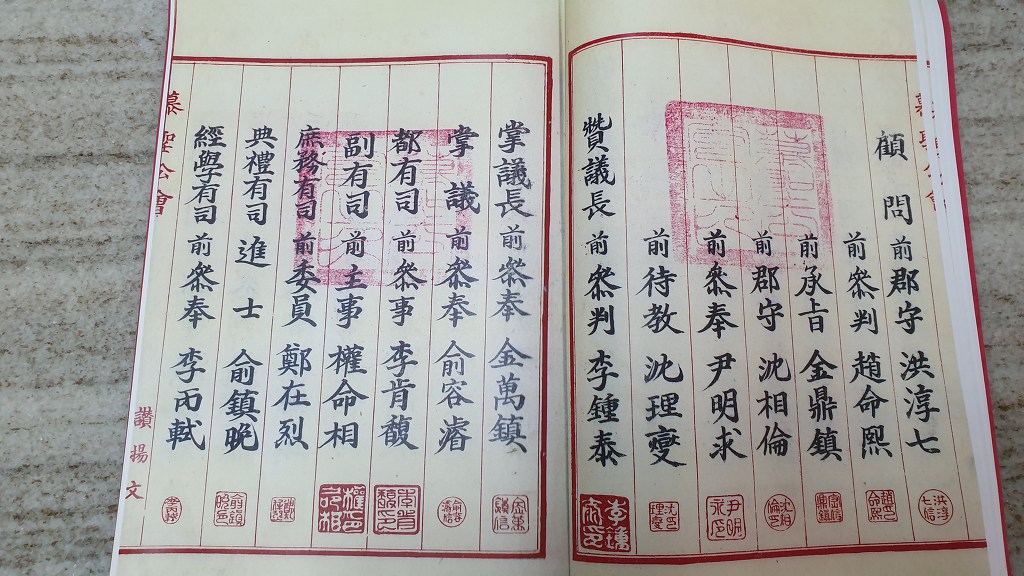 顧問 前郡守 洪淳七
前叅判 趙命熙
前承旨 金鼎鎮
前郡守 沈相倫
前叅奉 尹明求
前待教 沈理燮
賛議長 前叅判 李鍾泰
掌議長 前叅奉 金萬鎮
掌議 前叅奉 俞容濬
都有司 前叅事 李肯馥
副有司 前主事 權命相
庶務有司 前委員 鄭在烈
典禮有司 進士 俞鎮晚
經學有司 前叅奉 李丙軾
慕聖公會
讃揚文